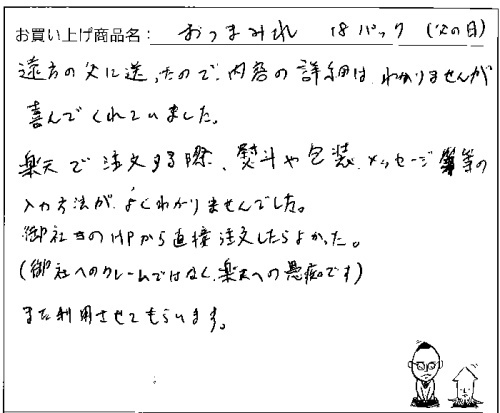 お買い上げ商品名: おつまみれ 18パック (父の日)
遠方の父に送ったので、内容の詳細は、わかりませんが
喜んでくれていました。
楽天で注文する際、熨斗や包装、メッセージ等の
入力方法が、よくわかりませんでした。
御社のHPから直接注文したらよかった。
(御社へのクレームではなく、楽天への愚痴です)
また利用させてもらいます。